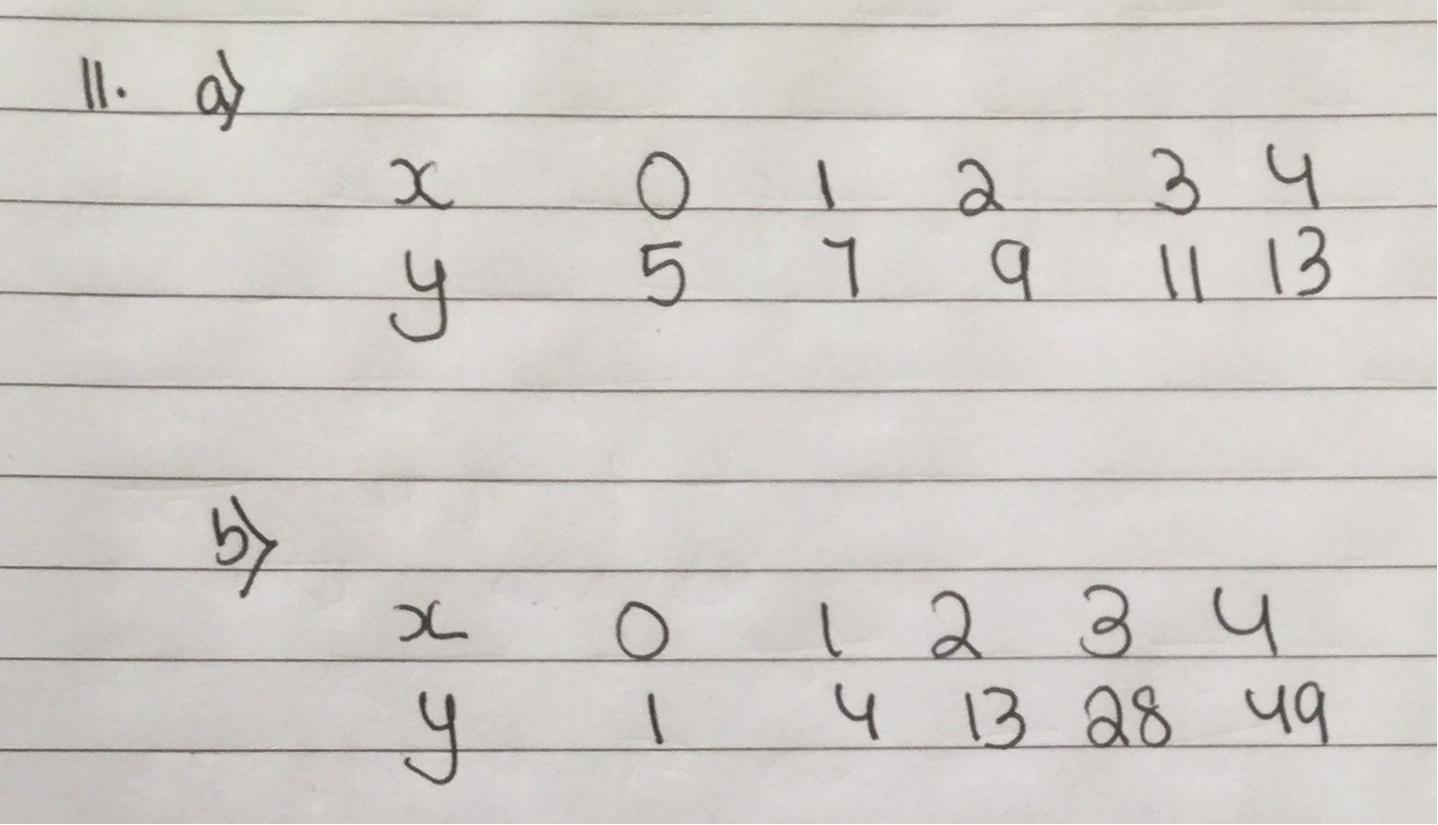 11. a)
x 0 1 2 3 4
y 5 7 9 11 13
b)
x 0 1 2 3 4
y 1 4 13 28 49